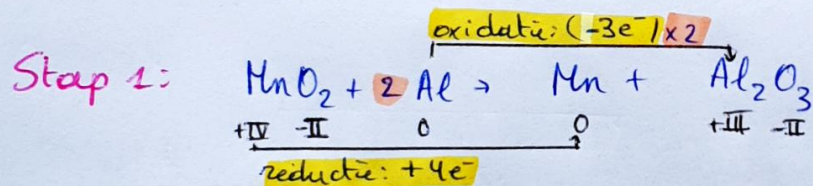 oxidatie: (-3e⁻) x 2
Stap 1: MnO₂ + 2 Al → Mn + Al₂O₃
+IV -II 0 0 +III -II
reductie: +4e⁻